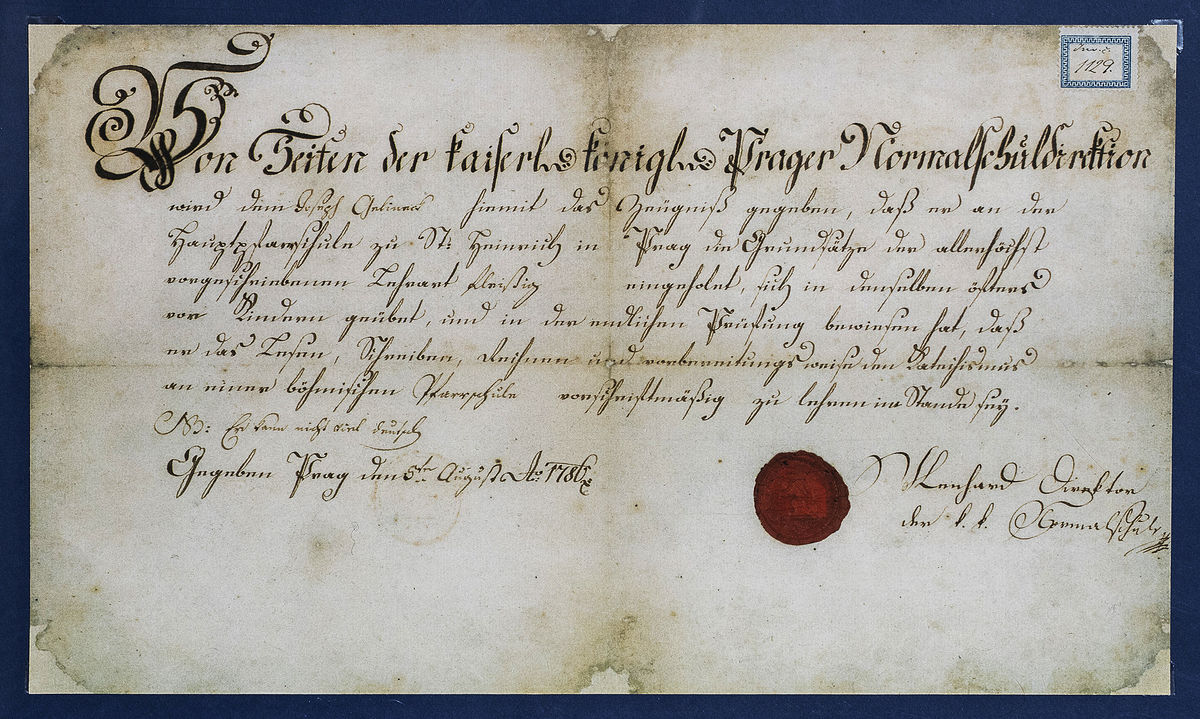 Inv. č.
1129.
Von Seiten der kaiserl. königl. Prager Normalschuldirektion
wird dem Joseph Gelineck hiemit das Zeügniß gegeben, daß er an der
Hauptpfarrschule zu St: Heinrich in Prag die Grundsätze der allerhöchst
vorgeschriebenen Lehrart fleißig eingeholet, sich in denselben öfters
vor Kindern geübet, und in der endlichen Prüfung bewiesen hat, daß
er das Lesen, Schreiben, Rechnen und vorbereitungsweise den Katechismus
an einer böhmischen Pfarrschule vorschriftmäßig zu lehren im Stande sey.
NB: Er kann nicht viel deutsch
Gegeben Prag den 5ten August Ao. 1786
Direktor
der k. k. Normalschule